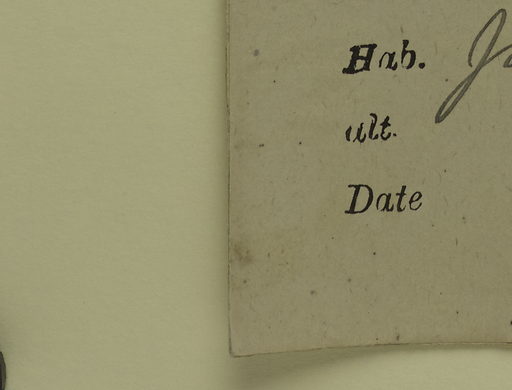 Hab.
alt.
Date